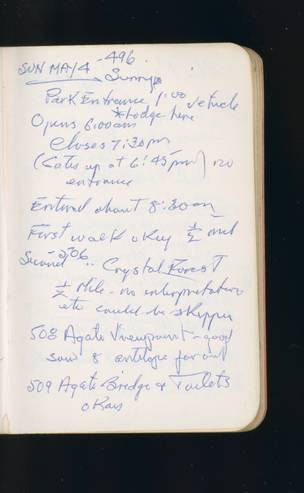 SUN MAY 4 - 496
Sunny
Park Entrance 1.00 vehicle
* Lodge here
Opens 6:00am
Closes 7:30pm
(Gates up at 6:45pm) no
entrance
Entered about 8:30am
First walk okay ½ mil
Second - 506 .. Crystal Forest
½ Mile - no interpretation
etc could be skipped
508 Agate Viewpoint - good
saw 8 antelope far out
509 Agate Bridge & Toilets
okay